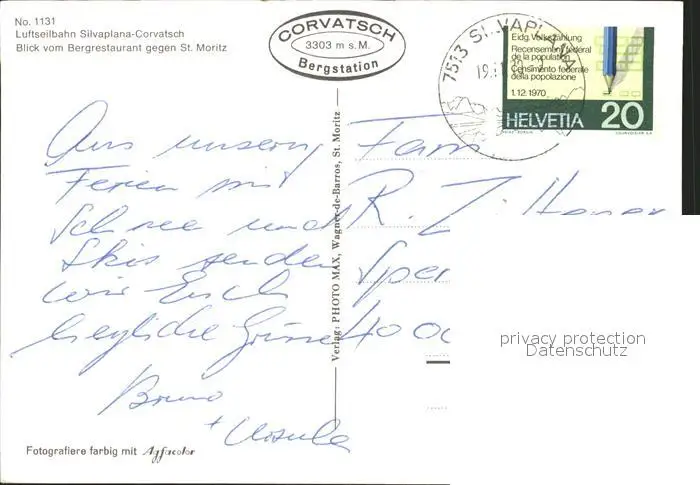 No. 1131
Luftseilbahn Silvaplana-Corvatsch
Blick vom Bergrestaurant gegen St. Moritz
CORVATSCH
3303 m s.M.
Bergstation
7513 SILVAPLANA
Eidg. Volkszählung
Recensement fédéral
de la population
Censimento federale
della popolazione
1.12.1970
HELVETIA 20
COURVOISIER S.A.
Aus unsern
Ferien mit
Schnee und
Skis senden
wir Euch
herzliche Grüsse
Bruno
+ Ursula
Fam
R.
40 00
Verlag: PHOTO MAX, Wagner-de-Barros, St. Moritz
Fotografiere farbig mit Agfacolor
privacy protection
Datenschutz